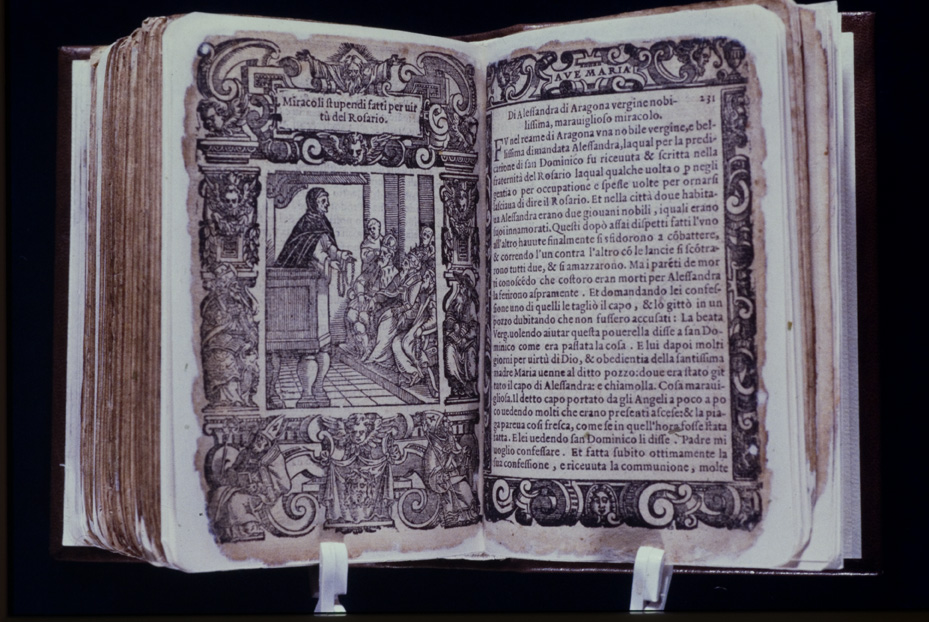 Miracoli stupendi fatti per uir
tù del Rosario.
AVE MARIA
231
Di Alessandra di Aragona vergine nobi-
lissima, marauiglioso miracolo.
FV nel reame di Aragona vna nobile vergine, e bel-
lissima dimandata Alessandra, laqual per la predi-
catione di san Dominico fu riceuuta & scritta nella
fraternità del Rosario laqual qualche uolta o p negli
gentia o per occupatione e spesse uolte per ornarsi
lasciaua di dire il Rosario. Et nella città doue habita-
ua Alessandra erano due giouani nobili, iquali erano
suoi innamorati. Questi dopò assai dispetti fatti l'vno
all'altro hauute finalmente si sfidorono a cōbattere,
& correndo l'un contra l'altro cō le lancie si scōtra-
rono tutti due, & si amazzarono. Ma i parēti de mor
ti conoscēdo che costoro eran morti per Alessandra
la ferirono aspramente. Et domandando lei confes-
sione uno di quelli le tagliò il capo, & lo gittò in un
pozzo dubitando che non fussero accusati: La beata
Verg. uolendo aiutar questa pouerella disse a san Do-
minico come era passata la cosa. E lui dapoi molti
giorni per uirtù di Dio, & obedientia della santissima
madre Maria uenne al ditto pozzo: doue era stato git
tato il capo di Alessandra: e chiamolla. Cosa maraui-
gliosa. Il detto capo portato da gli Angeli a poco a po
co uedendo molti che erano presenti ascese: & la pia-
ga pareua cosi fresca, come se in quell'hora fosse stata
fatta. E lei uedendo san Dominico li disse. Padre mi
uoglio confessare. Et fatta subito ottimamente la
sua confessione, e riceuuta la communione, molte